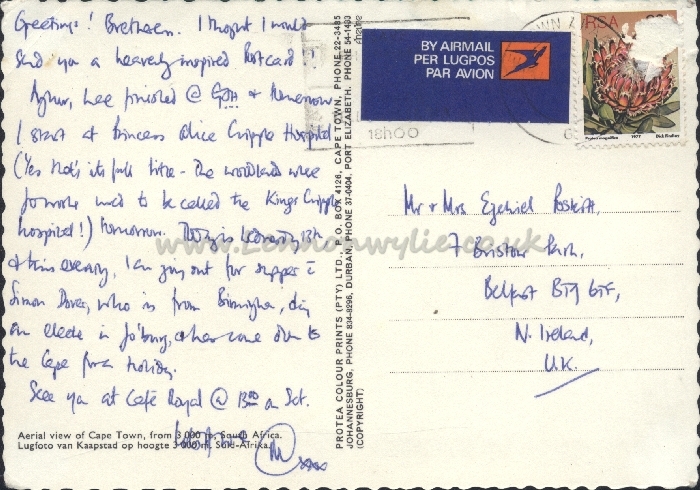 Greetings! Brethren. I thought I would
send you a heavenly inspired Postcard!
finished @ GSH &
I start at Princess Alice Cripple Hospital
(Yes that's its full title - the woodlands where
you work used to be called the Kings Cripple
hospital!) tomorrow. Today is 13th
& this evening, I am going out for supper c̄
Simon who is from Birmingham, doing
an elective in Jo'burg, & has come down to
the Cape for a holiday.
See you at Café Royal @ 1300 on Sat.
Aerial view of Cape Town, from 3 000 m, South Africa.
Lugfoto van Kaapstad op hoogte 3 000 m, Suid-Afrika.
xxx
PROTEA COLOUR PRINTS (PTY) LTD., P.O. BOX 4126, CAPE TOWN, PHONE 22-3485
JOHANNESBURG, PHONE 834-8996, DURBAN, PHONE 37-0404, PORT ELIZABETH, PHONE 54-1403
(COPYRIGHT)
BY AIRMAIL
PER LUGPOS
PAR AVION
18h00
RSA
Protea magnifica 1977 Dick Findlay
Mr & Mrs Ezekiel
7 Bristow Park,
Belfast BT9 6TF,
N. Ireland,
U.K.
www.Lennonwylie.co.uk